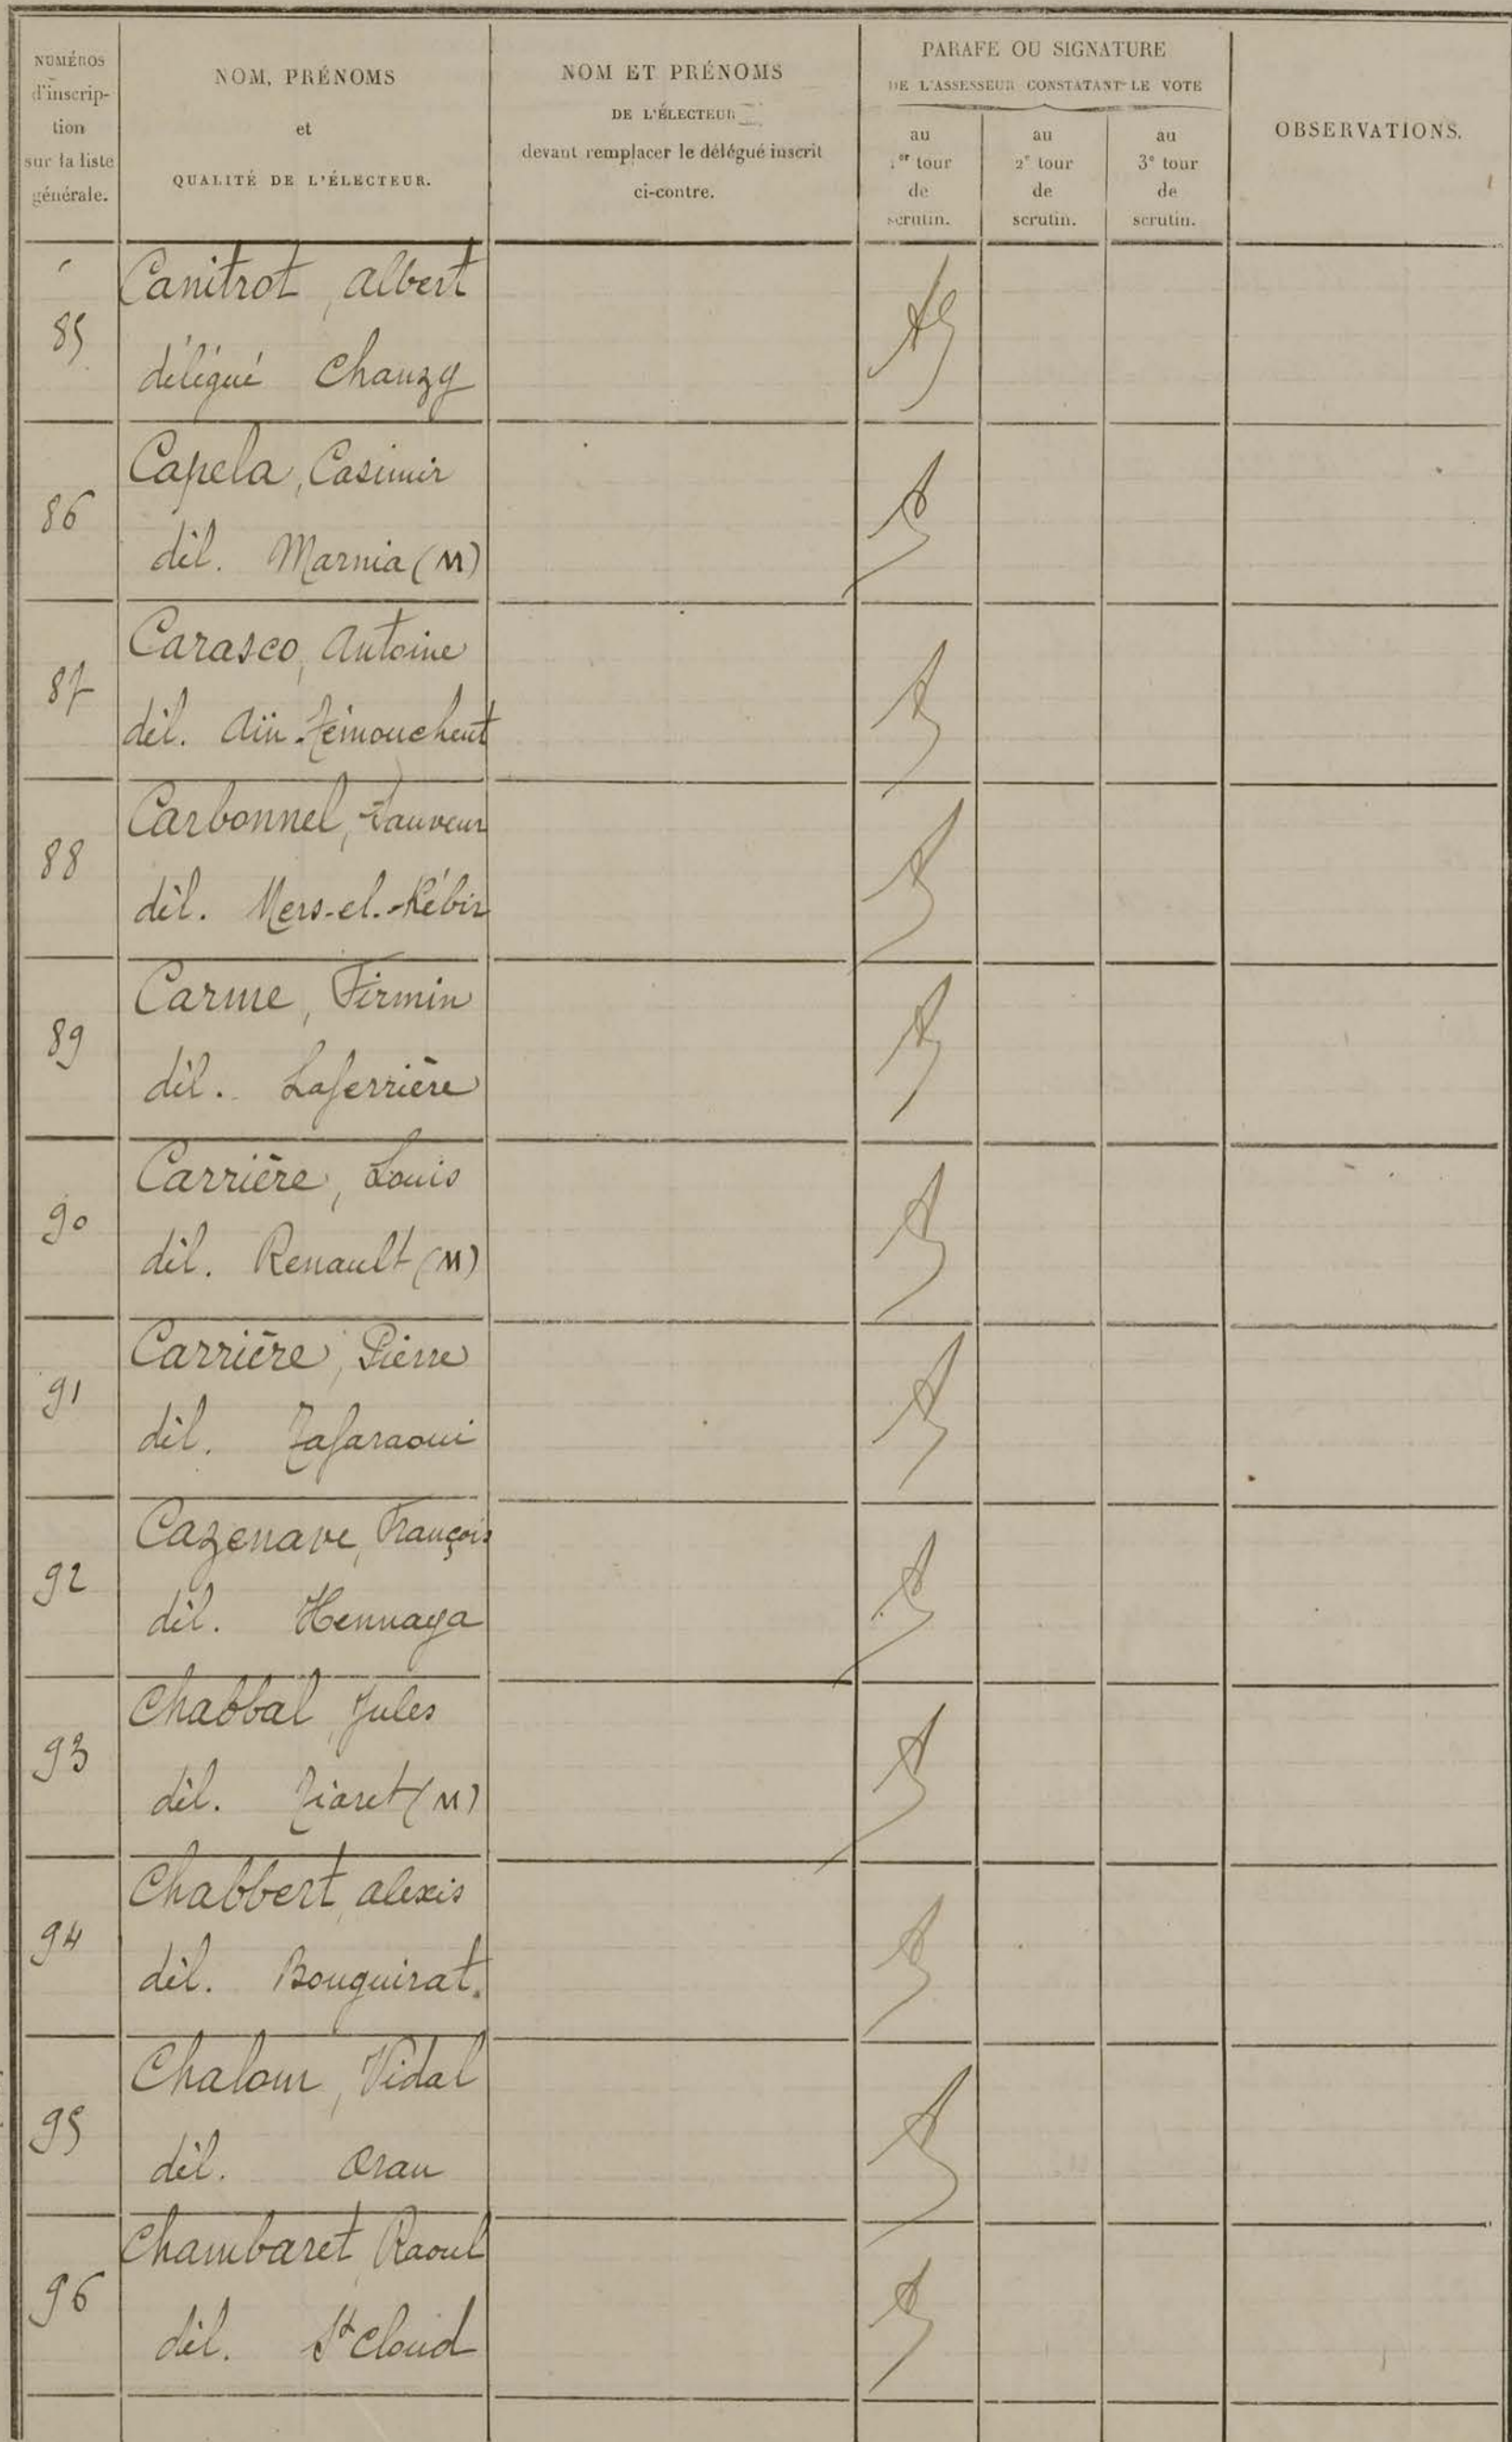 NUMÉROS
d'inscrip-
tion
sur la liste
générale.
NOM, PRÉNOMS
et
QUALITÉ DE L'ÉLECTEUR.
NOM ET PRÉNOMS
DE L'ÉLECTEUR
devant remplacer le délégué inscrit
ci-contre.
PARAFE OU SIGNATURE
DE L'ASSESSEUR CONSTATANT LE VOTE
au
1er tour
de
scrutin.
au
2e tour
de
scrutin.
au
3e tour
de
scrutin.
OBSERVATIONS.
85
Canitrot, Albert
délégué Chanzy
86
Capela, Casimir
dél. Marnia (M)
87
Carasco, Antoine
dél. Aïn-Témouchent
88
Carbonnel, Sauveur
dél. Mers-el-Kébir
89
Carme, Firmin
dél. Laferrière
90
Carrière, Louis
dél. Renault (M)
91
Carrière, Pierre
dél. Tafaraoui
92
Cazenave, François
dél. Hennaya
93
Chabbal, Jules
dél. Tiaret (M)
94
Chabbert, Alexis
dél. Bouguirat.
95
Chalom, Vidal
dél. Oran
96
Chambaret, Raoul
dél. St Cloud